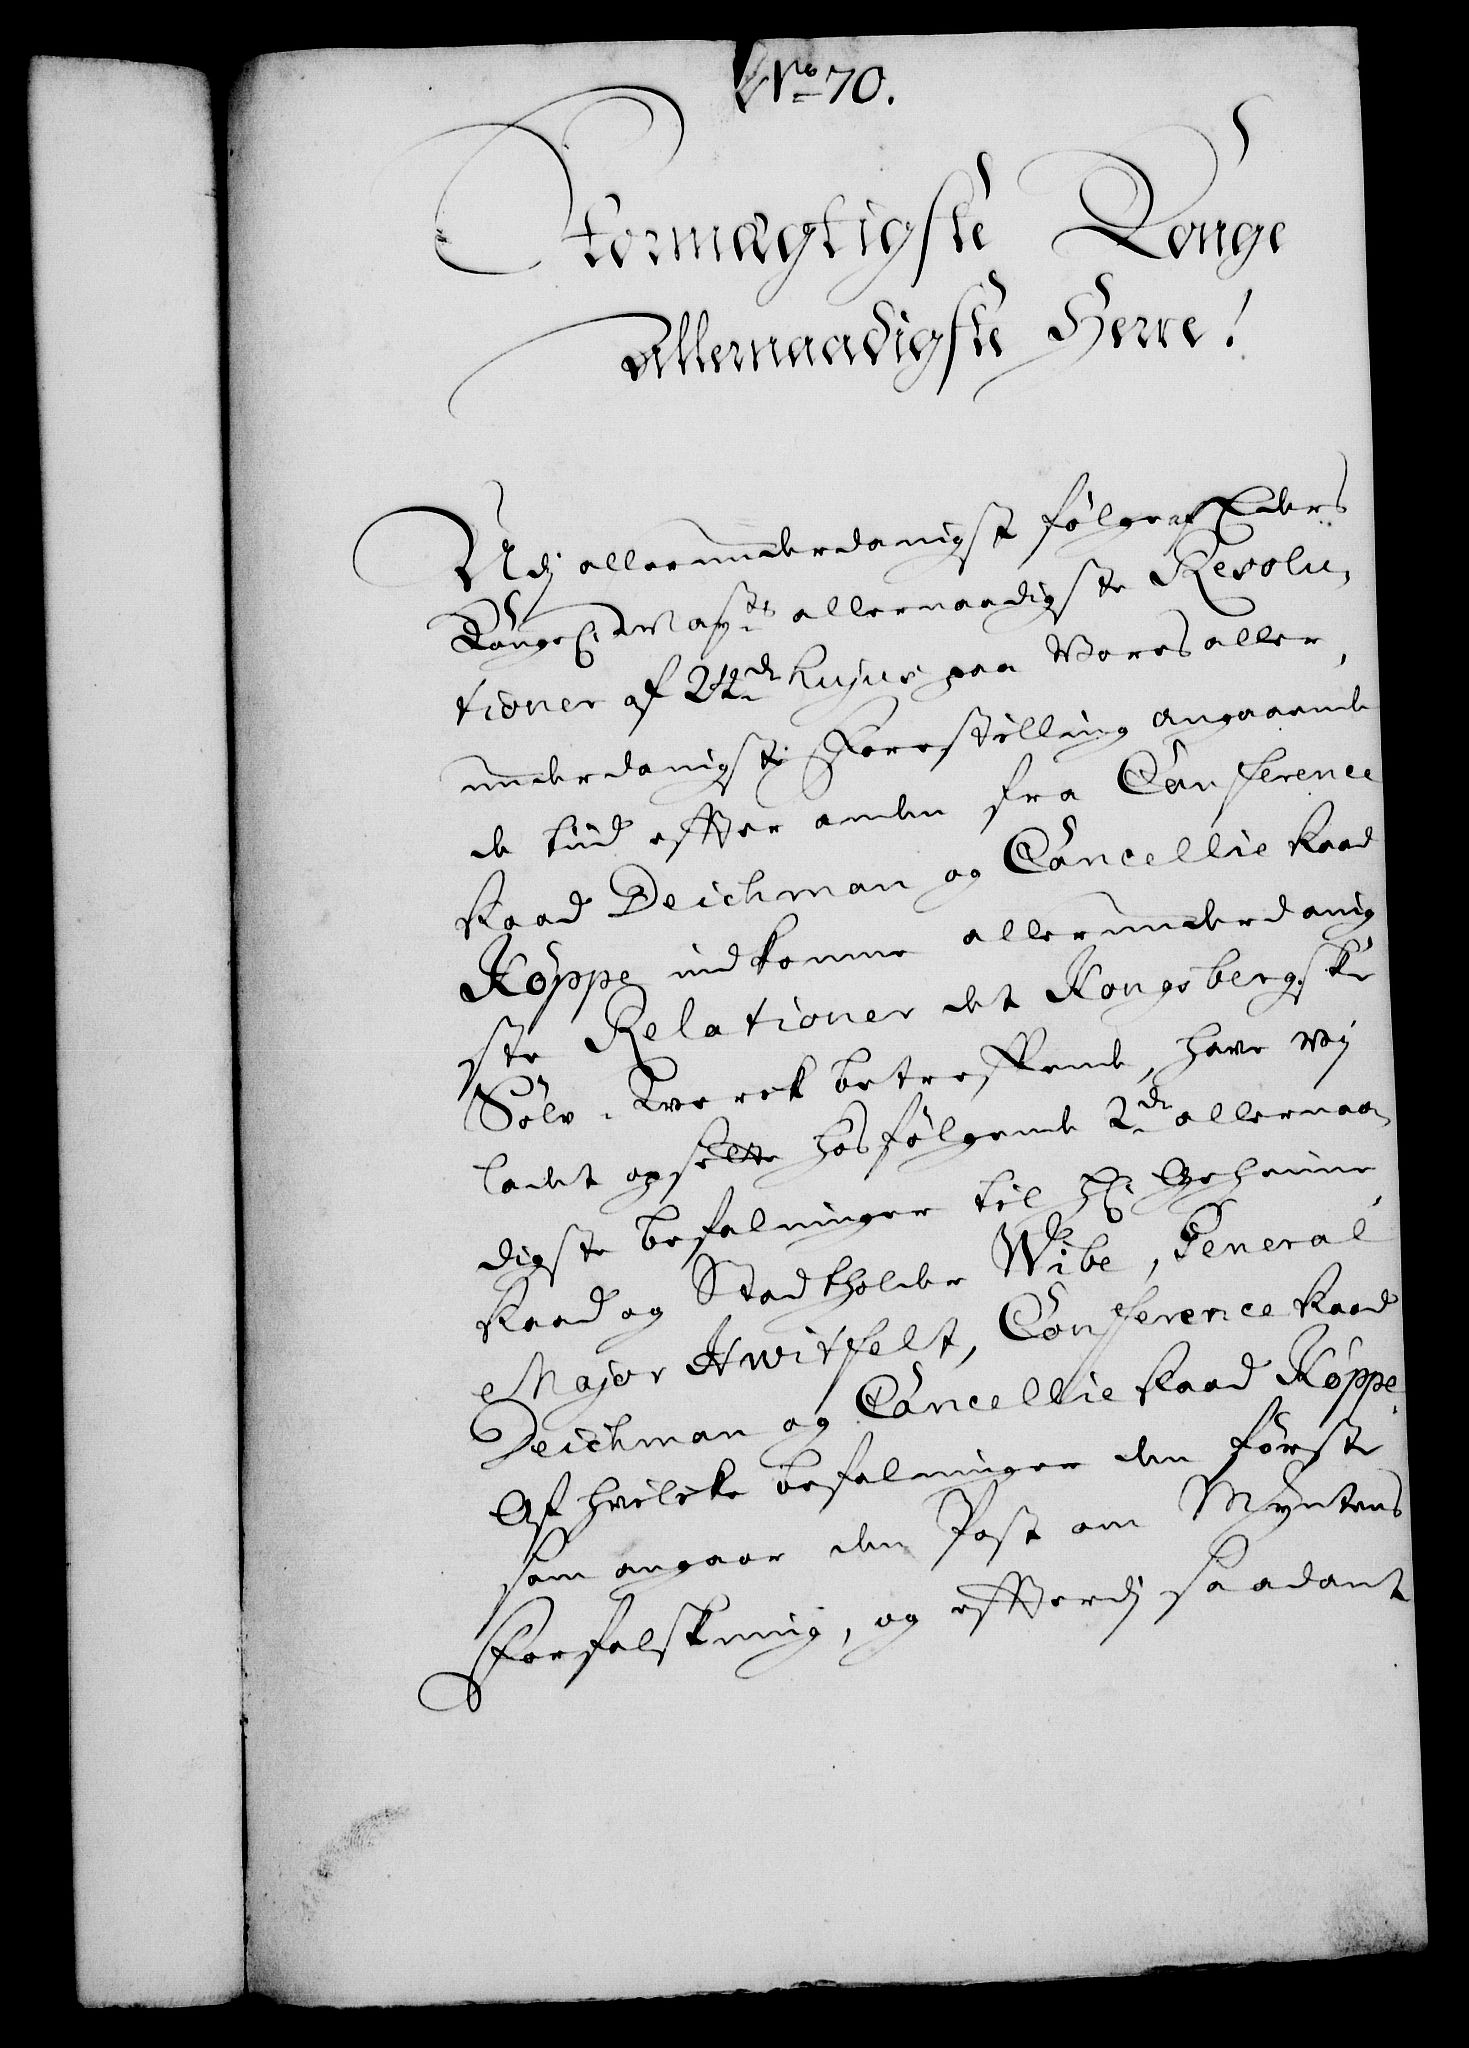 No 70.
Stormægtigste Konge
Allernaadigste Herre!
Udj allerunderdanigst følge af Eders
Kongel: Mayts allernaadigste Resolu-
tioner af 24de hujus paa Vores aller-
underdanigste Forestilling angaaende
de tiid efter anden fra Conference
Raad Deichman og Cancellie Raad
Køppe indkomne allerunderdanig
ste Relationer det Kongsbergske
Sølv-Verck betreffende, have vij
ladet opsette hosfølgende 2de allernaa-
digste befalninger til H: Geheime
Raad og Stadtholder Wibe, General
Major Hwitfelt, Conference Raad
Deichman og Cancellie Raad Køppe.
Af hvilcke befalninger den første
som angaar den Post om Myntens
Forfalskning, og efterdj saadant